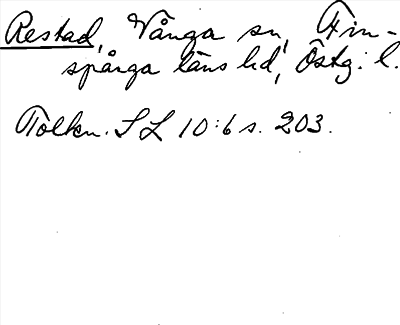 Restad, Vånga sn, Fin-
spånga läns hd, Östg. l.
Tolkn. SL 10:6 s. 203.